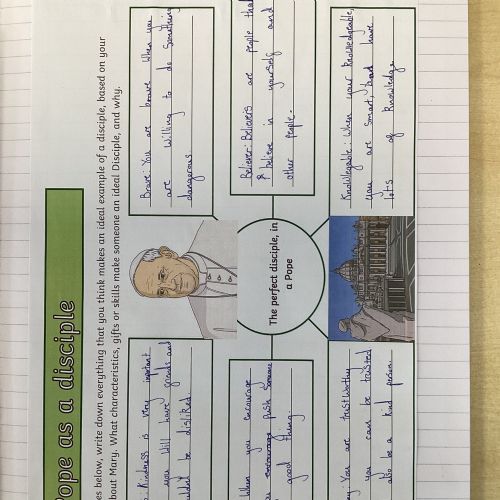 Pope as a disciple
es below, write down everything that you think makes an ideal example of a disciple, based on your
bout Mary. What characteristics, gifts or skills make someone an ideal Disciple, and why.
: Kindness is very important
you will have friends and
be disliked
Brave: You are brave when you
are willing to do something
dangerous
When you encourage
push someone
good thing
The perfect disciple, in
a Pope
Believer: Believers are people tha
& believe in yourself and
other people.
y: You are trustworthy
you can be trusted
also be a kind person
Knowledgable: When your knowledgeable,
you are smart, and have
lot's of knowledge